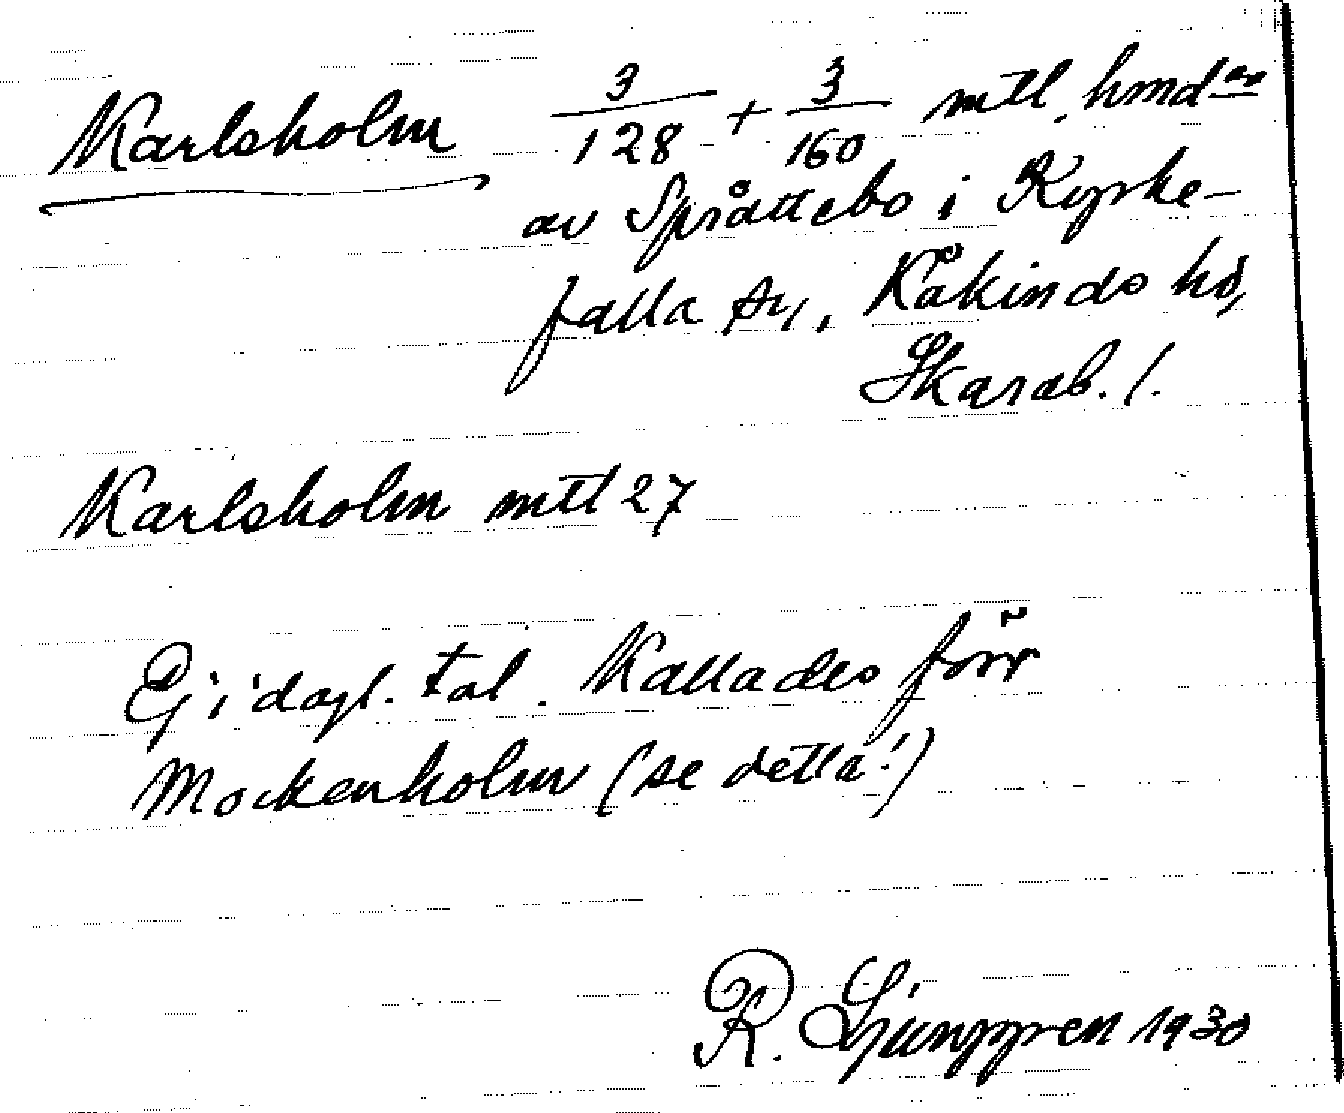 Karlsholm 3/128 + 3/160 mtl. hmd
av Språttebo i Kyrke-
falla sn, Kåkinds hd,
Skarab. l.
Karlsholm mtl 27
Ej i dagl. tal. Kallades förr
Mockenholm (se detta!)
R. Ljunggren 1930